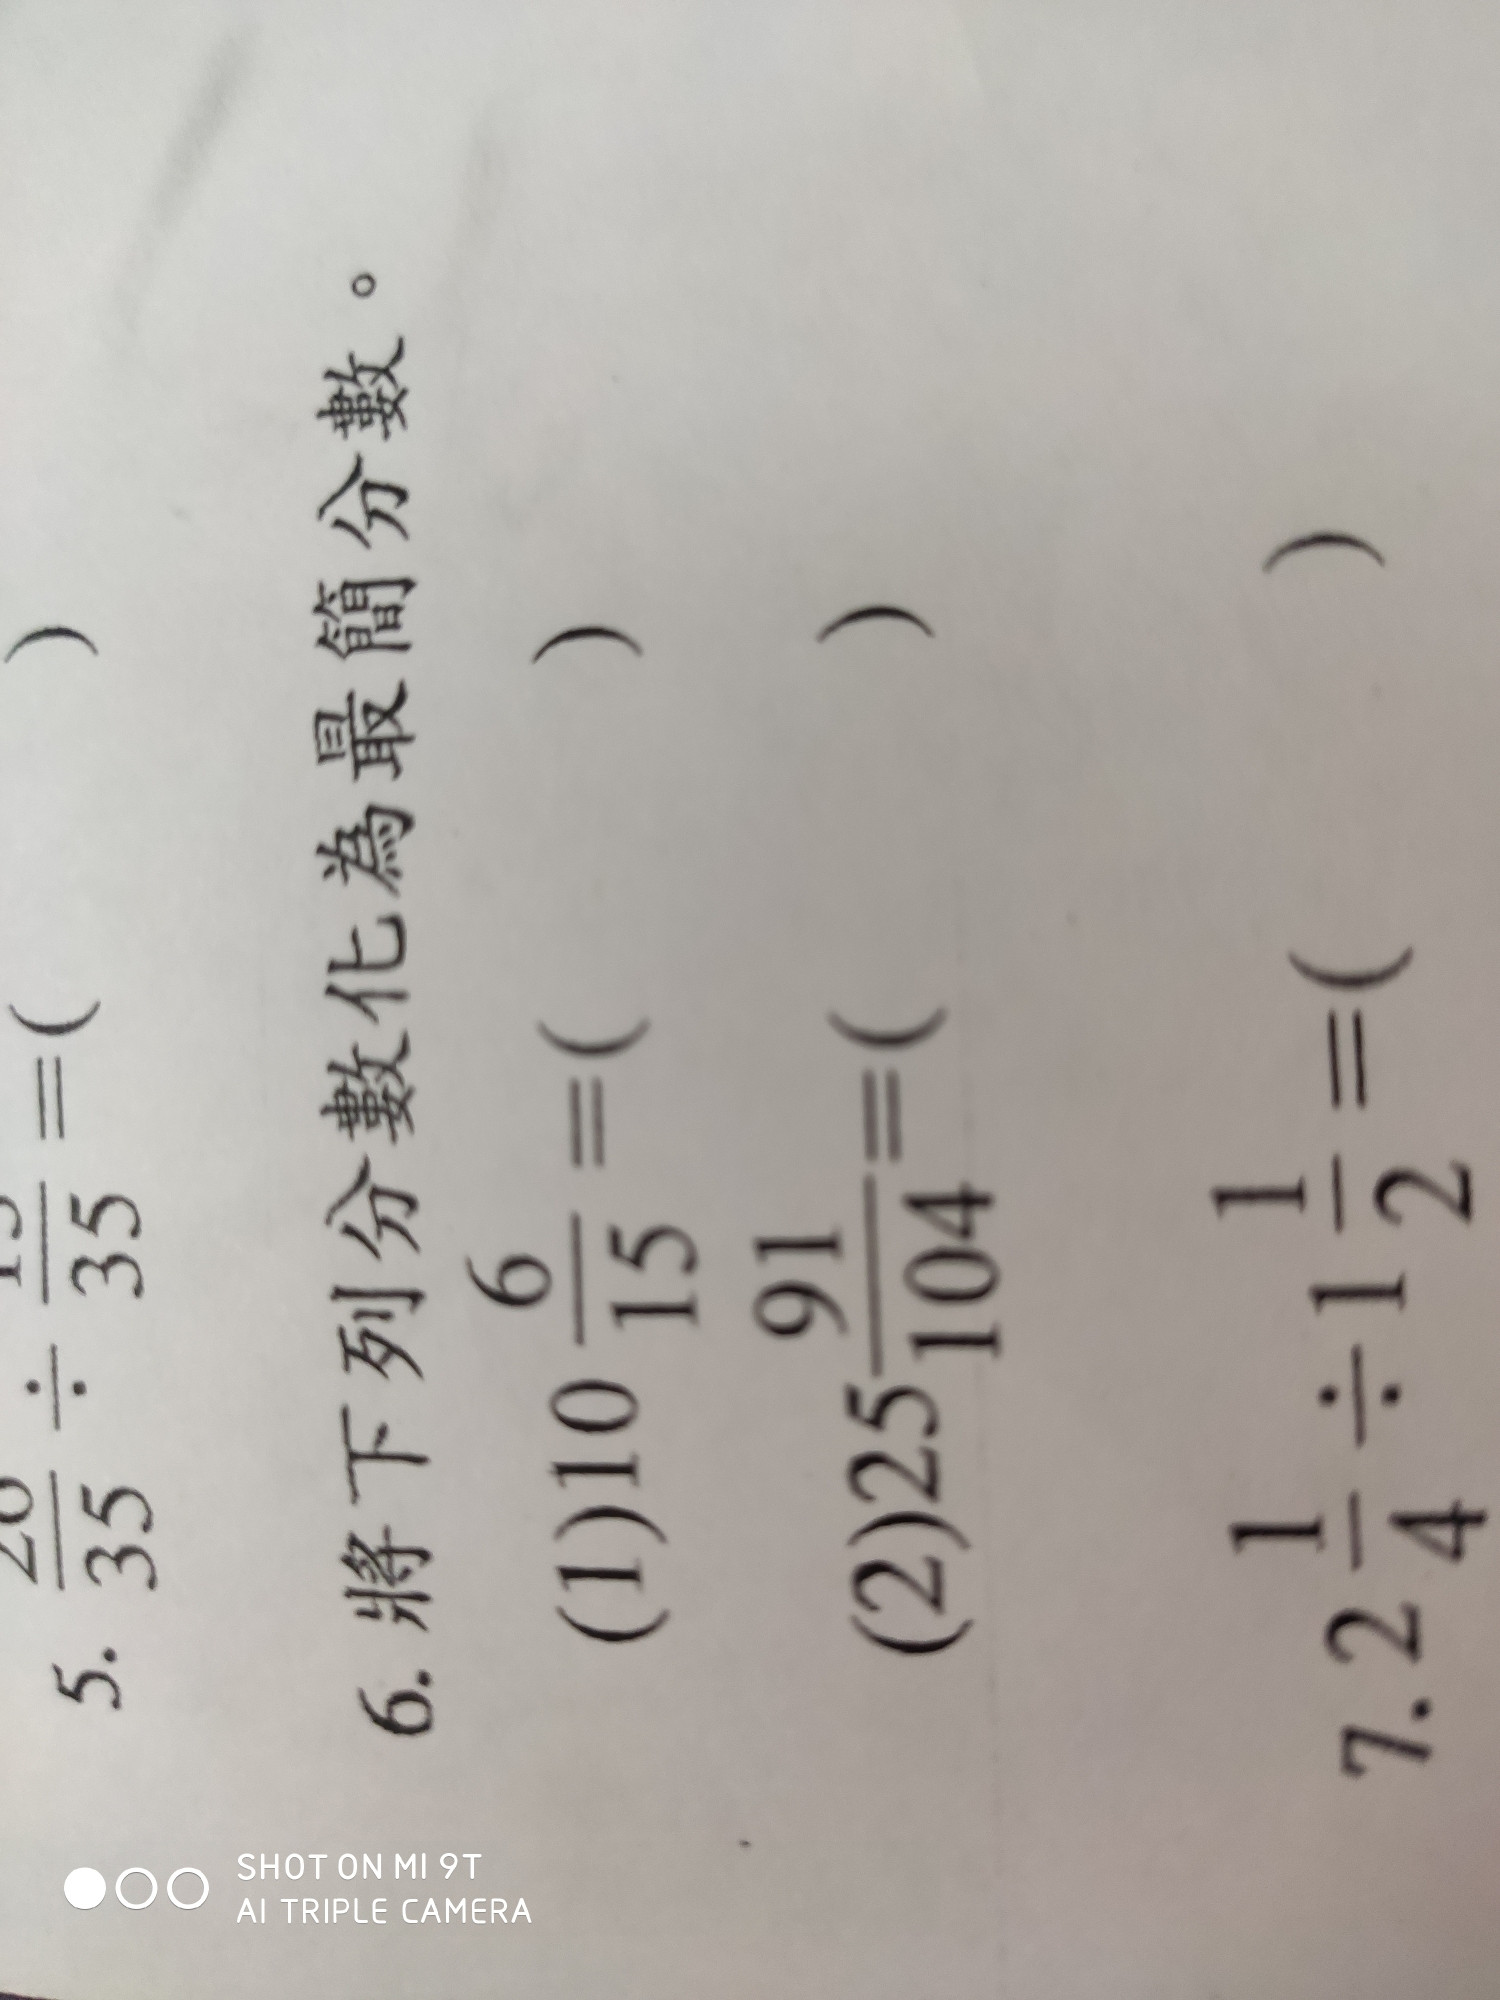 5. /35 ÷ /35 =( )
6. 將下列分數化為最簡分數。
(1)10 6/15 =( )
(2)25 91/104 =( )
7. 2 1/4 ÷ 1 1/2 =( )
SHOT ON MI 9T
AI TRIPLE CAMERA